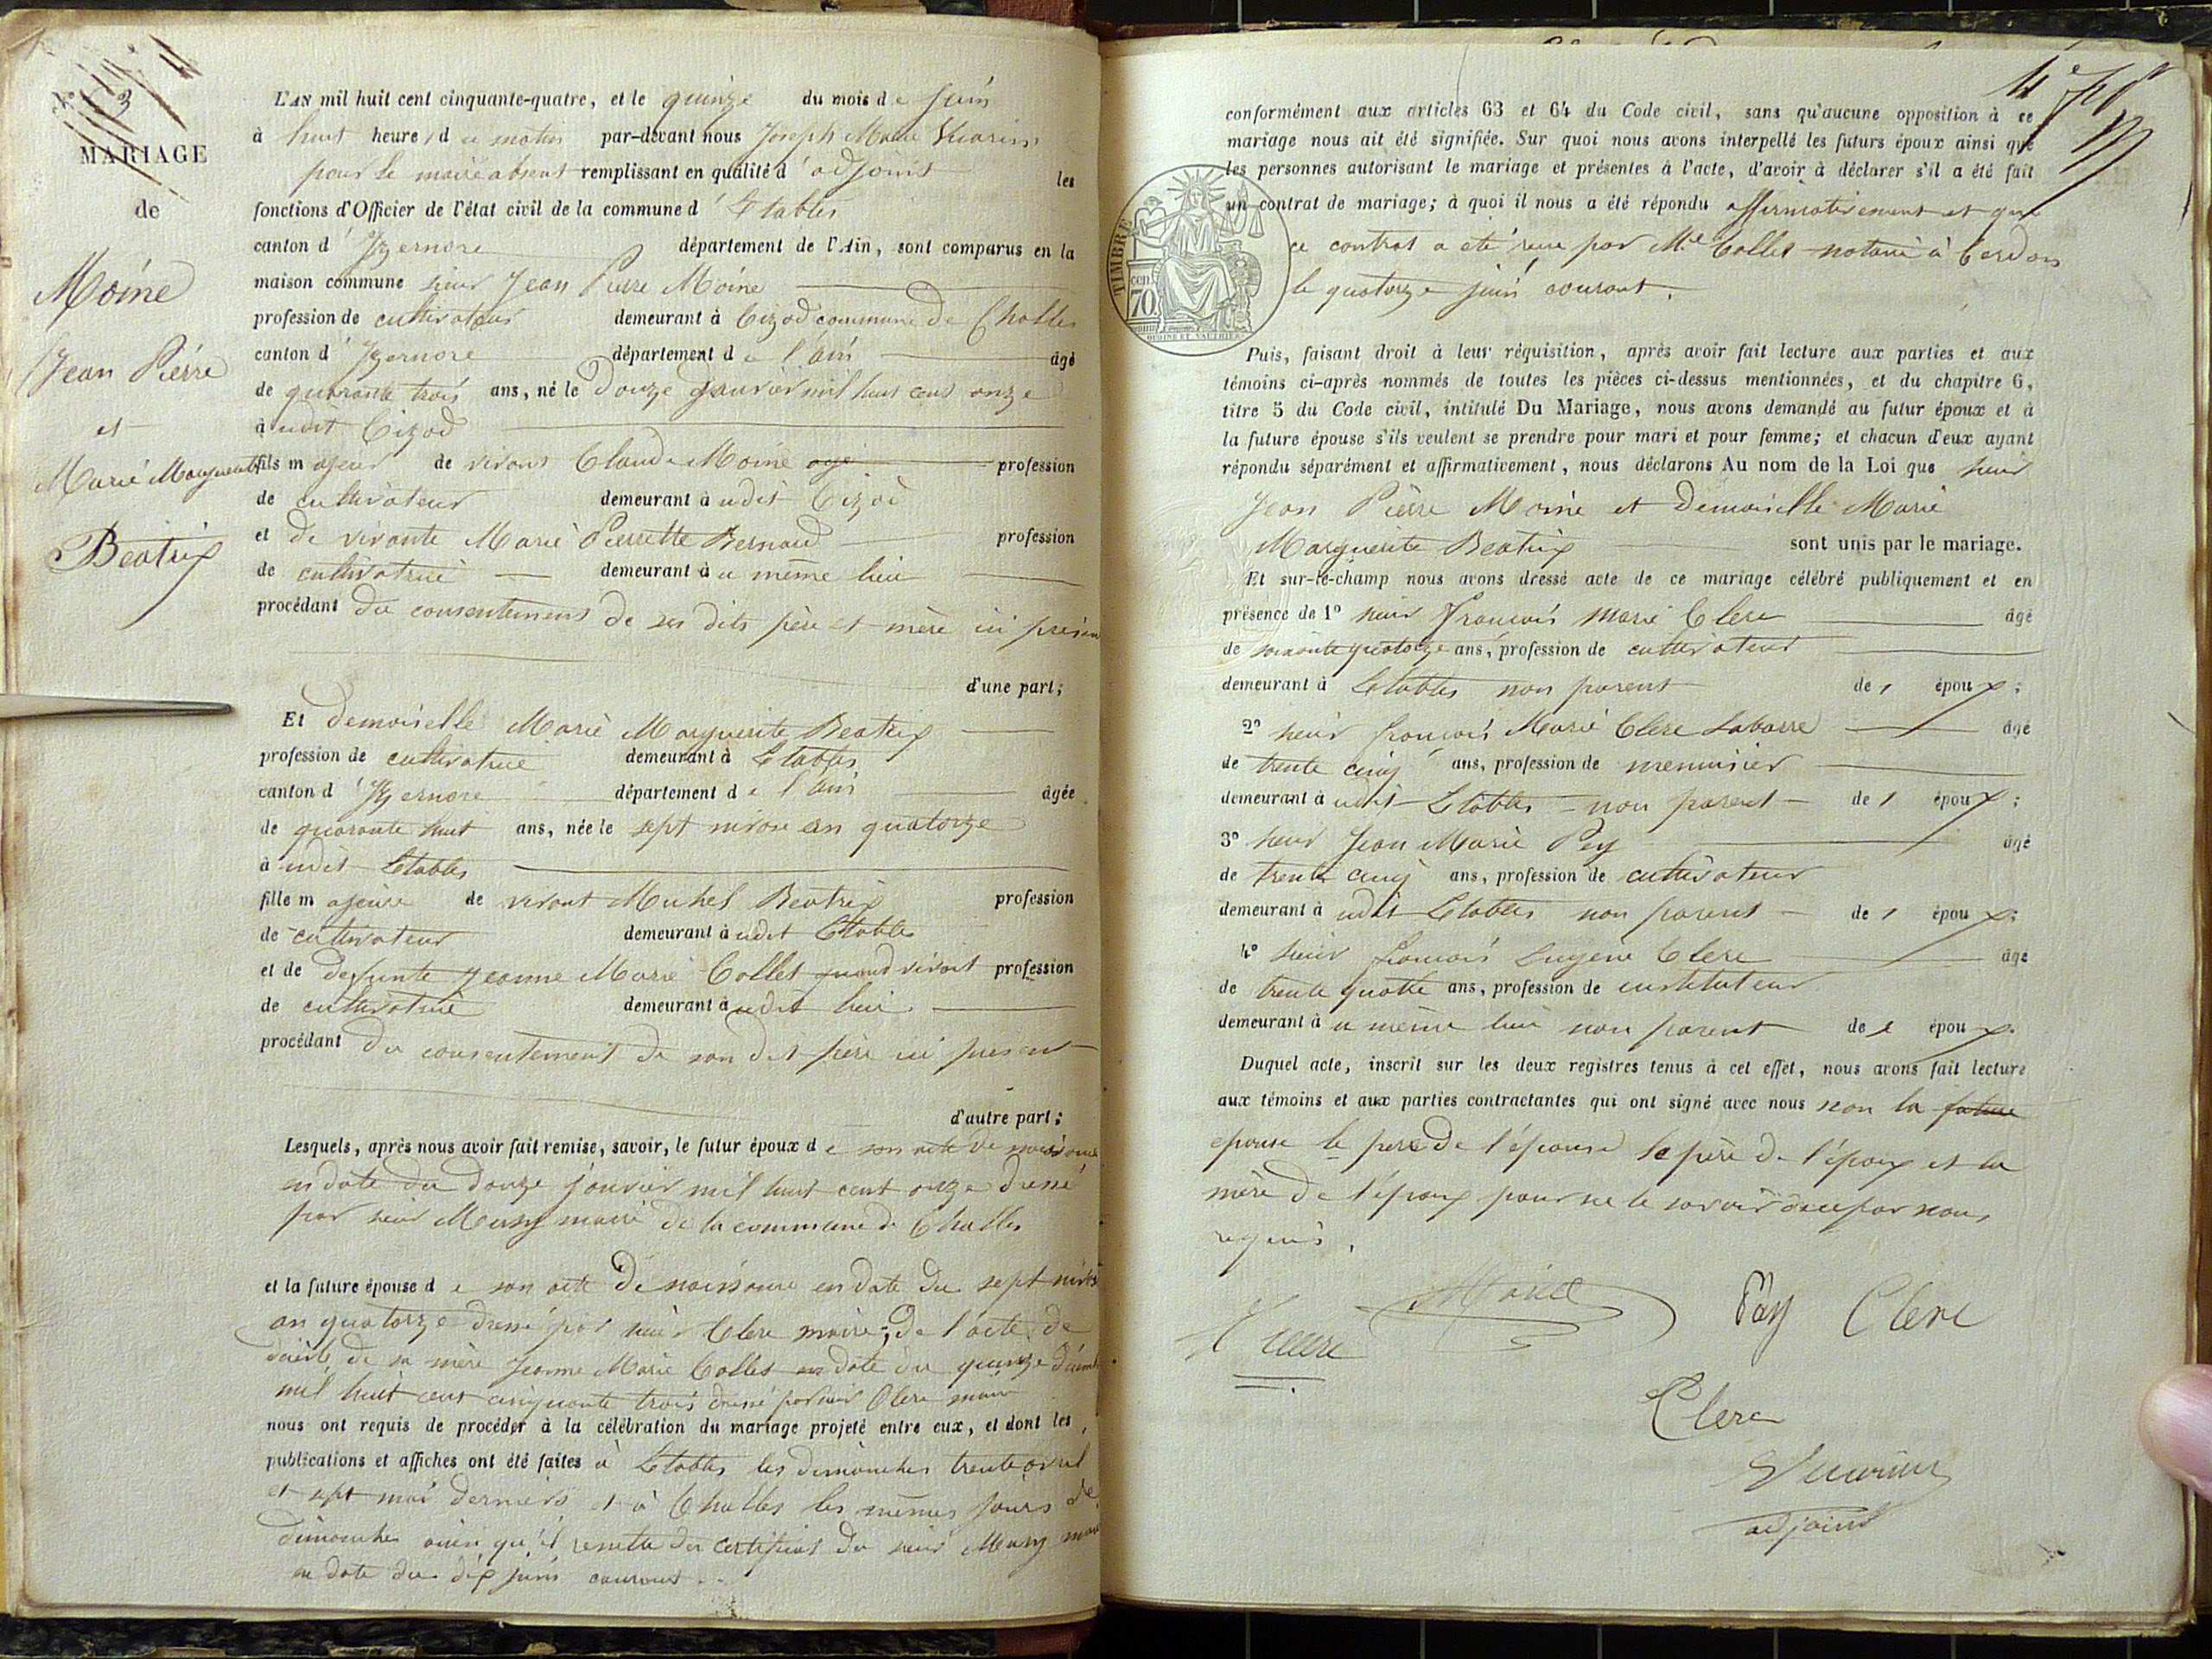 N° 3
MARIAGE
de
Moine
Jean Pierre
et
Marie Marguerite
Beatrix
L'AN mil huit cent cinquante-quatre, et le quinze du mois de Juin
à huit heures du matin par-devant nous Joseph Marie
pour le maire absent remplissant en qualité d'adjoint les
fonctions d'Officier de l'état civil de la commune d'Etables
canton d'Izernore département de l'Ain, sont comparus en la
maison commune sieur Jean Pierre Moine
profession de cultivateur demeurant à Cizod commune de Challes
canton d'Izernore département de l'ain âgé
de quarante trois ans, né le Douze Janvier mil huit cent onze
à udit Cizod
fils majeur de vivant Claude Moine age profession
de cultivateur demeurant à udit Cizod
et de vivante Marie Pierrette Bernard profession
de cultivatrice demeurant à u même lieu
procédant du consentement de ses dits père et mère ici présen
d'une part;
Et demoiselle Marie Marguerite Beatrix
profession de cultivatrice demeurant à Etables
canton d'Izernore département de l'ain âgée
de quarante huit ans, née le sept nivose an quatorze
à udit Etables
fille majeure de vivant Michel Beatrix profession
de cultivateur demeurant à udit Etables
et de defunte Jeanne Marie Collet quand vivait profession
de cultivatrice demeurant à udit lieu
procédant du consentement de son dit père ici présent
d'autre part;
Lesquels, après nous avoir fait remise, savoir, le futur époux de son acte de naissance
en date du douze janvier mil huit cent onze dressé
par sieur maire de la commune de Challes
et la future épouse de son acte de naissance en date du sept nivose
an quatorze dressé par sieur Clerc maire; de l'acte de
décès de sa mère Jeanne Marie Collet en date du quinze décemb
mil huit cent cinquante trois dressé par sieur Clerc maire
nous ont requis de procéder à la célébration du mariage projeté entre eux, et dont les
publications et affiches ont été faites à Etables les dimanches trente avril
et sept mai derniers et à Challes les mêmes jours de
dimanches ainsi qu'il resulte du certificat du sieur maire
en date du dix juin courant.
conformément aux articles 63 et 64 du Code civil, sans qu'aucune opposition à ce
mariage nous ait été signifiée. Sur quoi nous avons interpellé les futurs époux ainsi que
les personnes autorisant le mariage et présentes à l'acte, d'avoir à déclarer s'il a été fait
un contrat de mariage; à quoi il nous a été répondu affirmativement et que
ce contrat a été reçu par Me Collet notaire à Cerdon
le quatorze juin courant.
TIMBRE
cen
70
Puis, faisant droit à leur réquisition, après avoir fait lecture aux parties et aux
témoins ci-après nommés de toutes les pièces ci-dessus mentionnées, et du chapitre 6,
titre 5 du Code civil, intitulé Du Mariage, nous avons demandé au futur époux et à
la future épouse s'ils veulent se prendre pour mari et pour femme; et chacun d'eux ayant
répondu séparément et affirmativement, nous déclarons Au nom de la Loi que sieur
Jean Pierre Moine et Demoiselle Marie
Marguerite Beatrix sont unis par le mariage.
Et sur-le-champ nous avons dressé acte de ce mariage célébré publiquement et en
présence de 1° sieur François Marie Clerc âgé
de soixante quatorze ans, profession de cultivateur
demeurant à Etables non parent des époux;
2° sieur François Marie Clerc Labarre âgé
de trente cinq ans, profession de menuisier
demeurant à udit Etables non parent des époux;
3° sieur Jean Marie Pey âgé
de trente cinq ans, profession de cultivateur
demeurant à udit Etables non parent des époux;
4° sieur François Eugène Clerc âgé
de trente quatre ans, profession de instituteur
demeurant à u même lieu non parent des époux.
Duquel acte, inscrit sur les deux registres tenus à cet effet, nous avons fait lecture
aux témoins et aux parties contractantes qui ont signé avec nous non la future
epouse le pere de l'épouse le père de l'époux et la
mère de l'époux pour ne le savoir de ce par nous
requis.
Moine Pay Clerc
Clerc
Clerc
adjoint